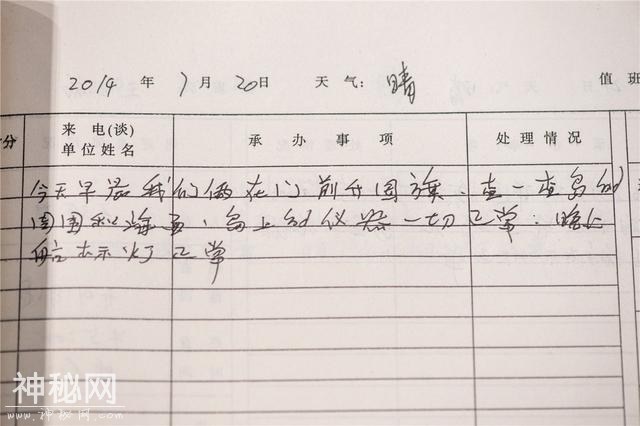 2014 年 7 月 20 日 天 气: 晴 值 班
分 来 电(谈) 承 办 事 项 处 理 情 况
单位姓名
今天早晨我们俩在门前升国旗、查一查岛的
周围和海面、岛上的仪器一切正常、晚上
航标灯正常
神秘网
www.神秘网.com